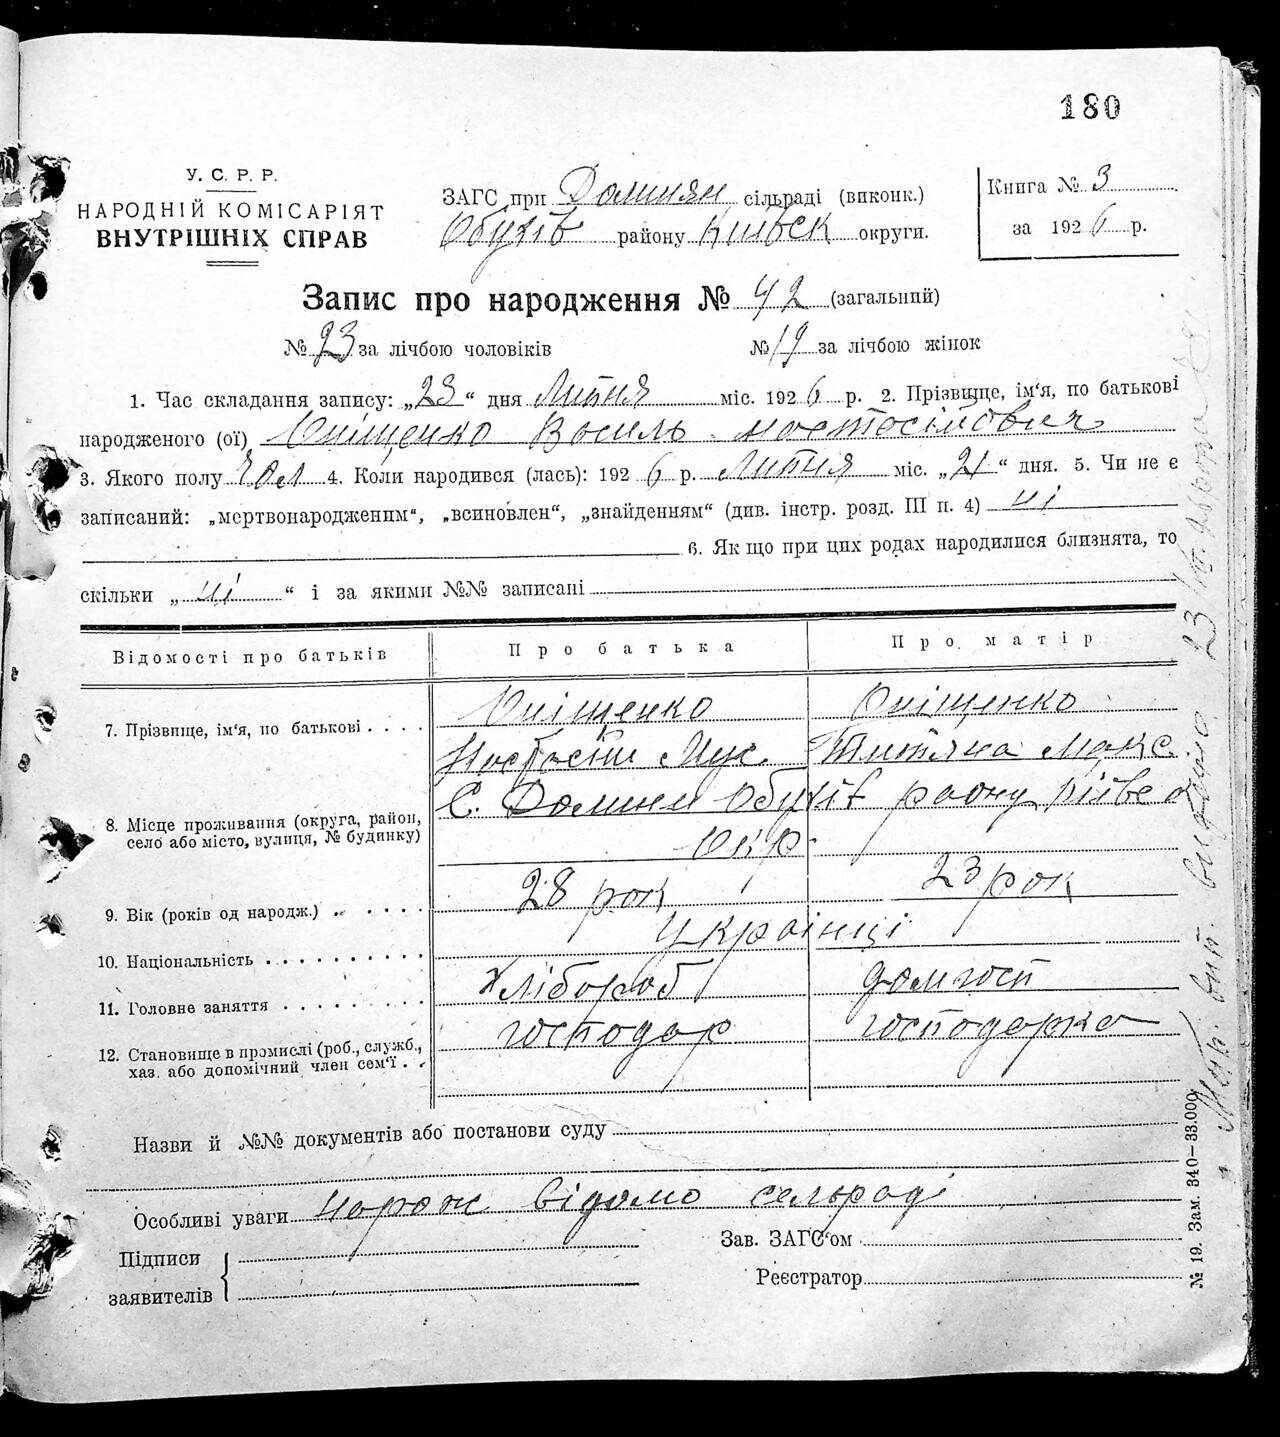 180
У. С. Р. Р.
НАРОДНІЙ КОМІСАРІЯТ
ВНУТРІШНІХ СПРАВ
ЗАГС при Долинян сільраді (виконк.)
Обухів району Київськ округи.
Книга № 3
за 1926 р.
Запис про народження № 42 (загальний)
№ 23 за лічбою чоловіків № 19 за лічбою жінок
1. Час складання запису: „23“ дня Липня міс. 1926 р. 2. Прізвище, ім'я, по батькові
народженого (ої) Оніщенко Василь Настосійович
3. Якого полу чол 4. Коли народився (лась): 1926 р. Липня міс. „21“ дня. 5. Чи не є
записаний: „мертвонародженим“, „всиновлен“, „знайденням“ (див. інстр. розд. III п. 4) ні
6. Як що при цих родах народилися близнята, то
скільки „ні“ і за якими №№ записані
Відомості про батьків Про батька Про матір
7. Прізвище, ім'я, по батькові Оніщенко Оніщенко
Настосій Мус Титяна Макс
8. Місце проживання (округа, район, село або місто, вулиця, № будинку) С. Долини Обухів раону Київсо
окр
9. Вік (років од народж.) 28 рок 23 рок
10. Національність Українці
11. Головне заняття Хлібороб домгосп
12. Становище в промислі (роб., служб., хаз. або допомічний член сем'ї господар господарка
Назви й №№ документів або постанови суду
Особливі уваги нарож відомо сельраді
Підписи
заявителів
Зав. ЗАГС'ом
Реєстратор
№ 19. Зам. 340—33.000
вип. видано 23